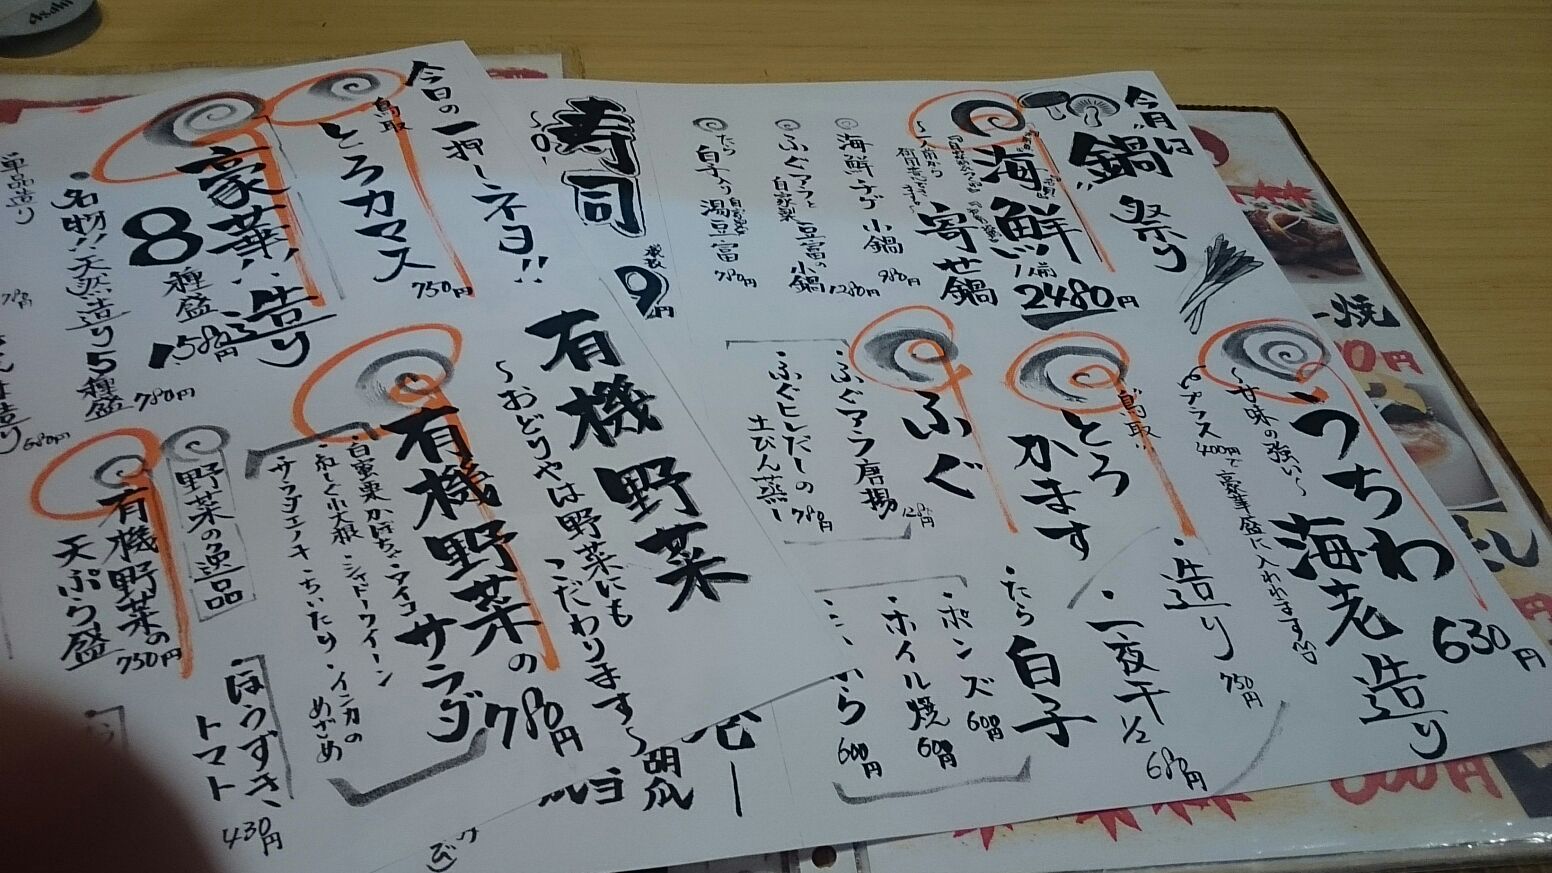 今月は
鍋祭り
海鮮
寄せ鍋
1人前
2480円
海鮮チゲ小鍋 980円
ふぐアラと
自家製豆富の小鍋 1280円
たら白子入り湯豆富 780円
うちわ
海老
造り
630円
〜甘味の強い〜
プラス400円で豪華盛に入れれます
鳥取
とろ
かます
・造り
750円
・一夜干 1/2
680円
ふぐ
・ふぐアラ唐揚
・ふぐヒレだしの
土びん蒸し 780円
・たら
白子
・ポンズ 600円
・ホイル焼 600円
600円
寿司
今日の
一押しネタ!!
鳥取
とろカマス
750円
豪華!!
造り
8種盛
1580円
・名物!!天然造り5種盛
780円
単品造り
680円
有機
野菜
〜おどりやは野菜にも
こだわります〜
有機
野菜の
サラダ
780円
・白蜜栗かぼちゃ・アイコ
・紅しぐれ大根・シャドークイーン
・サラダエノキ・ちぃたり・インカの
めざめ
野菜の逸品
有機
野菜の
天ぷら盛
750円
・ほうずき、
トマト
430円
胡瓜
Asahi
焼